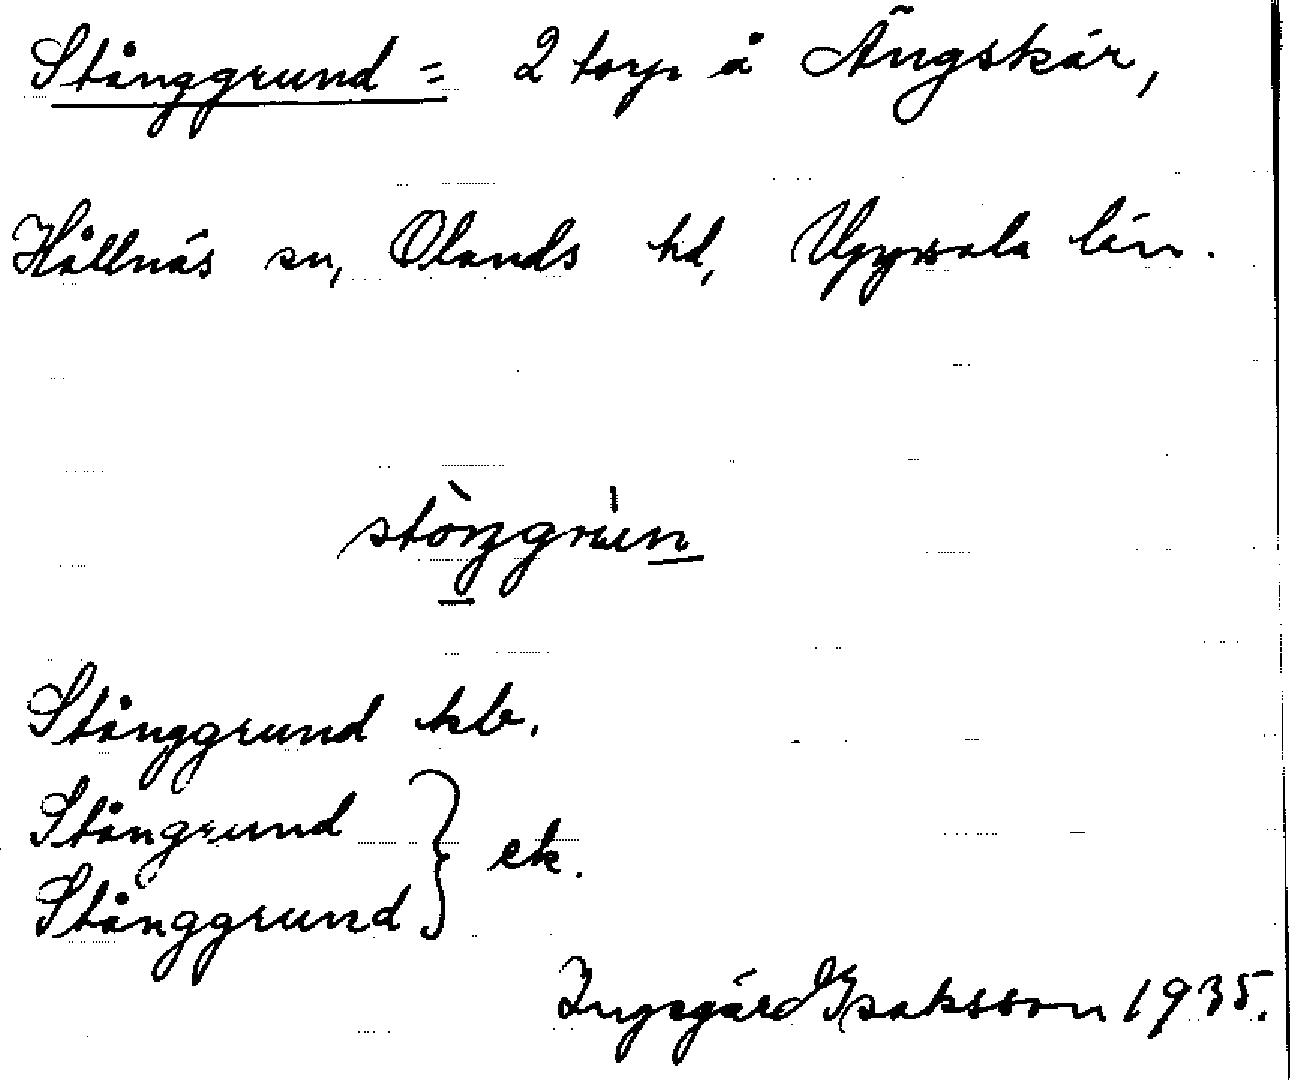 Stånggrund = 2 torp å Ängskär,
Hållnäs sn, Olands hd, Uppsala län.
Stånggrund hb.
Stångrund
Stånggrund } ek.
Isaksson 1935.